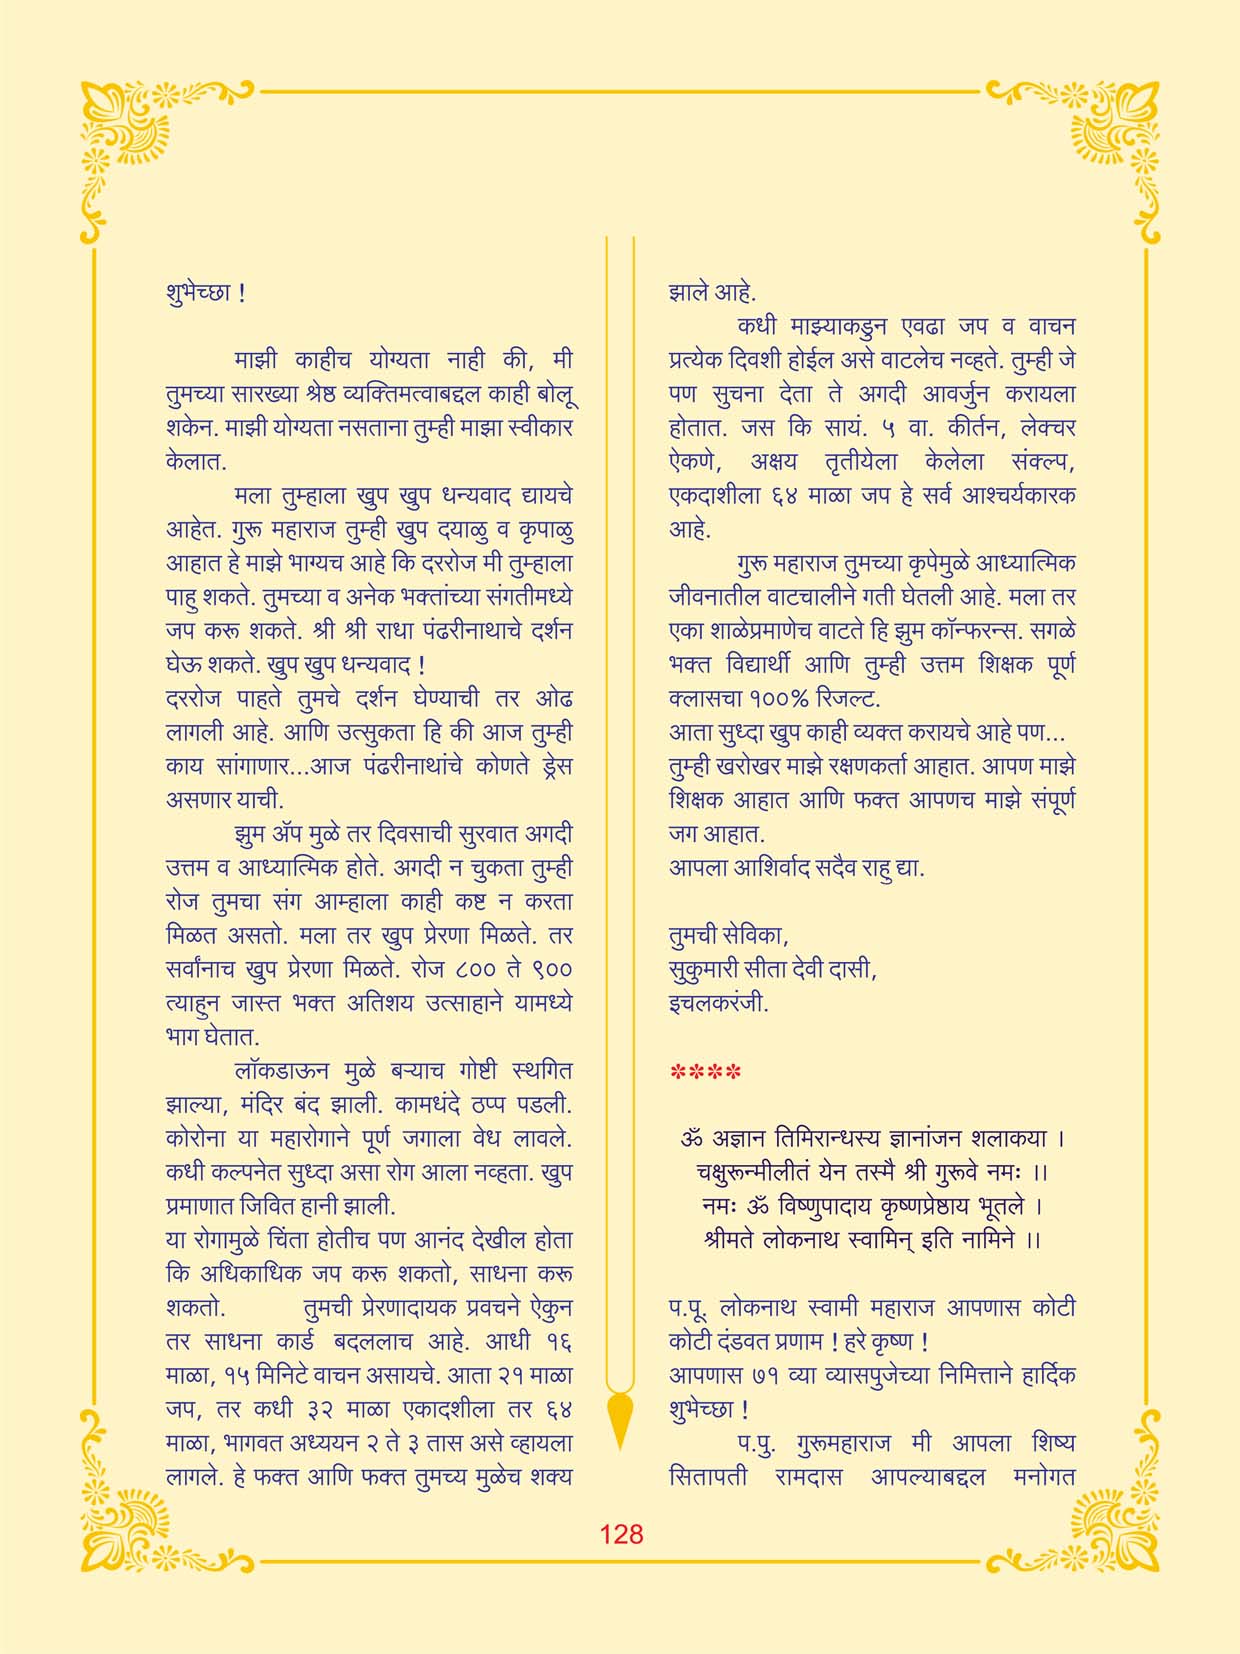 शुभेच्छा !
माझी काहीच योग्यता नाही की, मी
तुमच्या सारख्या श्रेष्ठ व्यक्तिमत्वाबद्दल काही बोलू
शकेन. माझी योग्यता नसताना तुम्ही माझा स्वीकार
केलात.
मला तुम्हाला खुप खुप धन्यवाद द्यायचे
आहेत. गुरू महाराज तुम्ही खुप दयाळु व कृपाळु
आहात हे माझे भाग्यच आहे कि दररोज मी तुम्हाला
पाहु शकते. तुमच्या व अनेक भक्तांच्या संगतीमध्ये
जप करू शकते. श्री श्री राधा पंढरीनाथाचे दर्शन
घेऊ शकते. खुप खुप धन्यवाद !
दररोज पाहते तुमचे दर्शन घेण्याची तर ओढ
लागली आहे. आणि उत्सुकता हि की आज तुम्ही
काय सांगाणार...आज पंढरीनाथांचे कोणते ड्रेस
असणार याची.
झुम ॲप मुळे तर दिवसाची सुरवात अगदी
उत्तम व आध्यात्मिक होते. अगदी न चुकता तुम्ही
रोज तुमचा संग आम्हाला काही कष्ट न करता
मिळत असतो. मला तर खुप प्रेरणा मिळते. तर
सर्वांनाच खुप प्रेरणा मिळते. रोज ८०० ते ९००
त्याहुन जास्त भक्त अतिशय उत्साहाने यामध्ये
भाग घेतात.
लॉकडाऊन मुळे बऱ्याच गोष्टी स्थगित
झाल्या, मंदिर बंद झाली. कामधंदे ठप्प पडली.
कोरोना या महारोगाने पूर्ण जगाला वेध लावले.
कधी कल्पनेत सुध्दा असा रोग आला नव्हता. खुप
प्रमाणात जिवित हानी झाली.
या रोगामुळे चिंता होतीच पण आनंद देखील होता
कि अधिकाधिक जप करू शकतो, साधना करू
शकतो. तुमची प्रेरणादायक प्रवचने ऐकुन
तर साधना कार्ड बदललाच आहे. आधी १६
माळा, १५ मिनिटे वाचन असायचे. आता २१ माळा
जप, तर कधी ३२ माळा एकादशीला तर ६४
माळा, भागवत अध्ययन २ ते ३ तास असे व्हायला
लागले. हे फक्त आणि फक्त तुमच्य मुळेच शक्य
झाले आहे.
कधी माझ्याकडुन एवढा जप व वाचन
प्रत्येक दिवशी होईल असे वाटलेच नव्हते. तुम्ही जे
पण सुचना देता ते अगदी आवर्जुन करायला
होतात. जस कि सायं. ५ वा. कीर्तन, लेक्चर
ऐकणे, अक्षय तृतीयेला केलेला संक्ल्प,
एकदाशीला ६४ माळा जप हे सर्व आश्चर्यकारक
आहे.
गुरू महाराज तुमच्या कृपेमुळे आध्यात्मिक
जीवनातील वाटचालीने गती घेतली आहे. मला तर
एका शाळेप्रमाणेच वाटते हि झुम कॉन्फरन्स. सगळे
भक्त विद्यार्थी आणि तुम्ही उत्तम शिक्षक पूर्ण
क्लासचा १००% रिजल्ट.
आता सुध्दा खुप काही व्यक्त करायचे आहे पण...
तुम्ही खरोखर माझे रक्षणकर्ता आहात. आपण माझे
शिक्षक आहात आणि फक्त आपणच माझे संपूर्ण
जग आहात.
आपला आशिर्वाद सदैव राहु द्या.
तुमची सेविका,
सुकुमारी सीता देवी दासी,
इचलकरंजी.
****
ॐ अज्ञान तिमिरान्धस्य ज्ञानांजन शलाकया ।
चक्षुरून्मीलीतं येन तस्मै श्री गुरूवे नमः ।।
नमः ॐ विष्णुपादाय कृष्णप्रेष्ठाय भूतले ।
श्रीमते लोकनाथ स्वामिन् इति नामिने ।।
प.पू. लोकनाथ स्वामी महाराज आपणास कोटी
कोटी दंडवत प्रणाम ! हरे कृष्ण !
आपणास ७१ व्या व्यासपुजेच्या निमित्ताने हार्दिक
शुभेच्छा !
प.पु. गुरूमहाराज मी आपला शिष्य
सितापती रामदास आपल्याबद्दल मनोगत
128